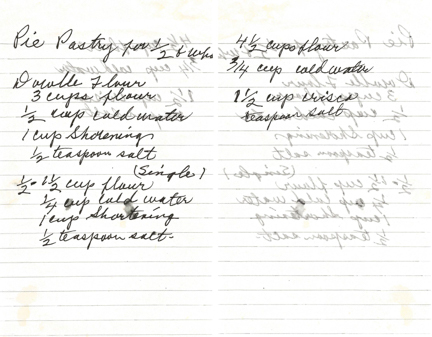 Pie Pastry for 1/2 & cups
Double Flour
3 cups flour
1/2 cup cold water
1 cup Shortening
1/2 teaspoon salt
(Single)
1/2 - 1 1/2 cup flour
1/4 cup cold water
1 cup Shortening
1/2 teaspoon salt-
4 1/2 cups flour
3/4 cup cold water
1 1/2 cup crisco
teaspoon salt